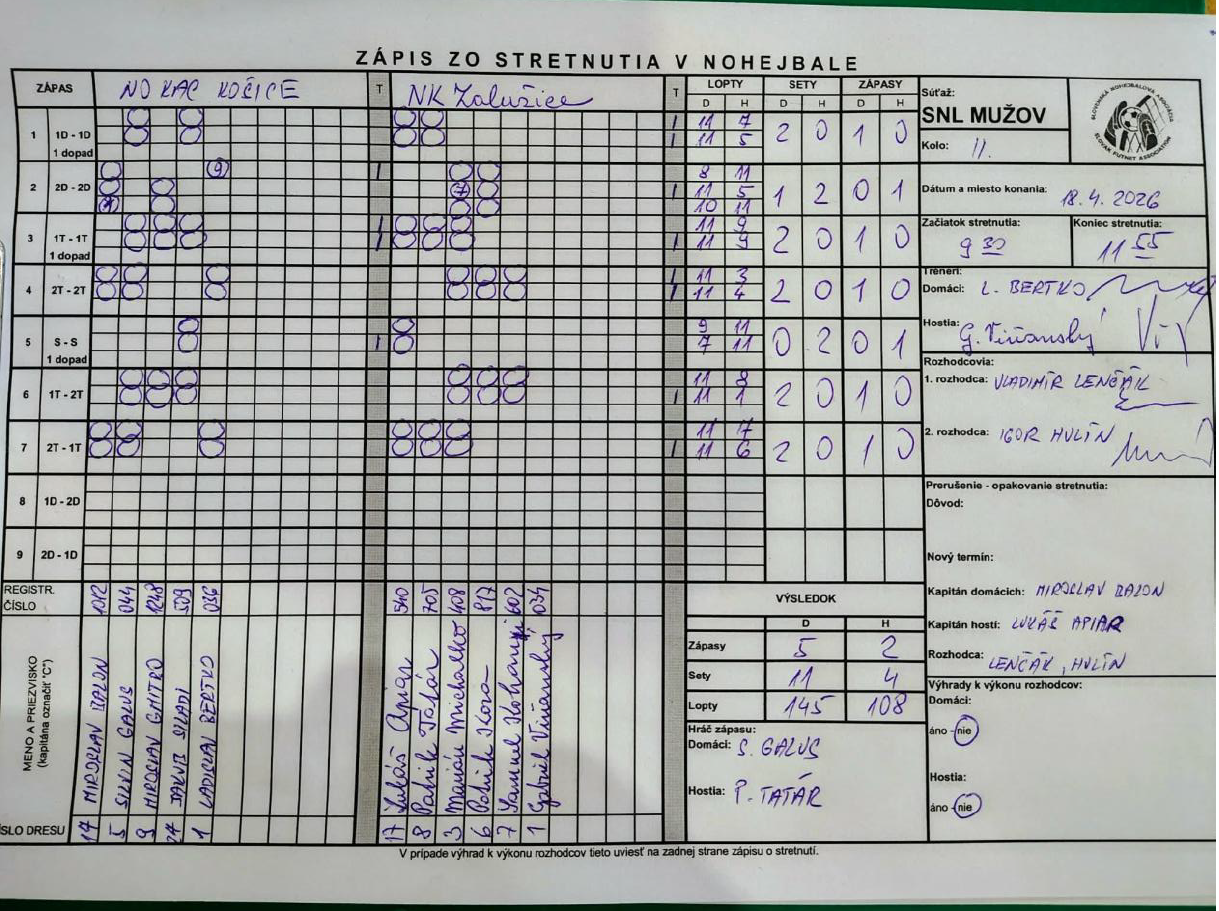 ZÁPIS ZO STRETNUTIA V NOHEJBALE
ZÁPAS NO KAC KOŠICE T NK Zalužice T LOPTY SETY ZÁPASY
D H D H D H
1 1D - 1D 1 dopad 2 0 1 0
11 7
11 5
2 2D - 2D 1 2 0 1
8 11
11 5
10 11
3 1T - 1T 1 dopad 2 0 1 0
11 9
11 9
4 2T - 2T 2 0 1 0
11 3
11 4
5 S - S 1 dopad 0 2 0 1
9 11
7 11
6 1T - 2T 2 0 1 0
11 8
11 1
7 2T - 1T 2 0 1 0
11 7
11 6
8 1D - 2D
9 2D - 1D
REGISTR. ČÍSLO
1012 044 1248 509 036
540 705 408 817 602 034
MENO A PRIEZVISKO
(kapitána označiť "C")
MIROSLAV BALON
GALUS
MIROSLAV GMITRO
SLADI
LADISLAV BERTKO
Lukáš Apiar
Patrik Tatár
Marián Michalko
Patrik
Samuel
Gabriel Viňanský
ČÍSLO DRESU
5 9 24 1
17 8 3 6 7 1
VÝSLEDOK
D H
Zápasy 5 2
Sety 11 4
Lopty 145 108
Hráč zápasu:
Domáci: S. GALUS
Hostia: P. TATÁR
Súťaž:
SNL MUŽOV
Kolo: 11.
SLOVENSKÁ NOHEJBALOVÁ ASOCIÁCIA
SLOVAK FUTNET ASSOCIATION
Dátum a miesto konania: 18.4.2026
Začiatok stretnutia: 9 30
Koniec stretnutia: 11 55
Tréneri:
Domáci: L. BERTKO
Hostia: G. Viňanský
Rozhodcovia:
1. rozhodca: VLADIMÍR LENČÁK
2. rozhodca: IGOR HULÍN
Prerušenie - opakovanie stretnutia:
Dôvod:
Nový termín:
Kapitán domácich: MIROSLAV BALON
Kapitán hostí: LUKÁŠ APIAR
Rozhodca: LENČÁK, HULÍN
Výhrady k výkonu rozhodcov:
Domáci:
áno - nie
Hostia:
áno - nie
V prípade výhrad k výkonu rozhodcov tieto uviesť na zadnej strane zápisu o stretnutí.